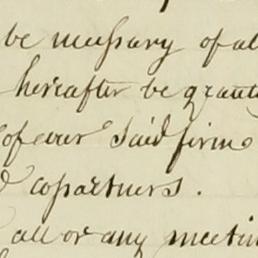 be necessary of al
hereafter be grante
of our said firm
d copartners.
all or any meetin